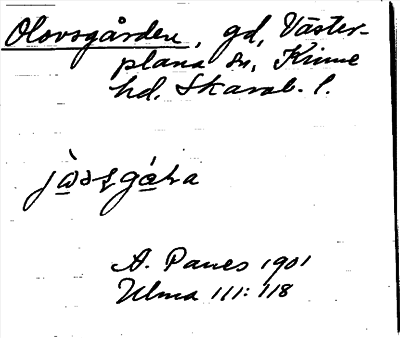 Olovsgården, gd, Väster-
plana sn, Kinne
hd. Skarab. l.
A. Panes 1901
Ulma 111:118